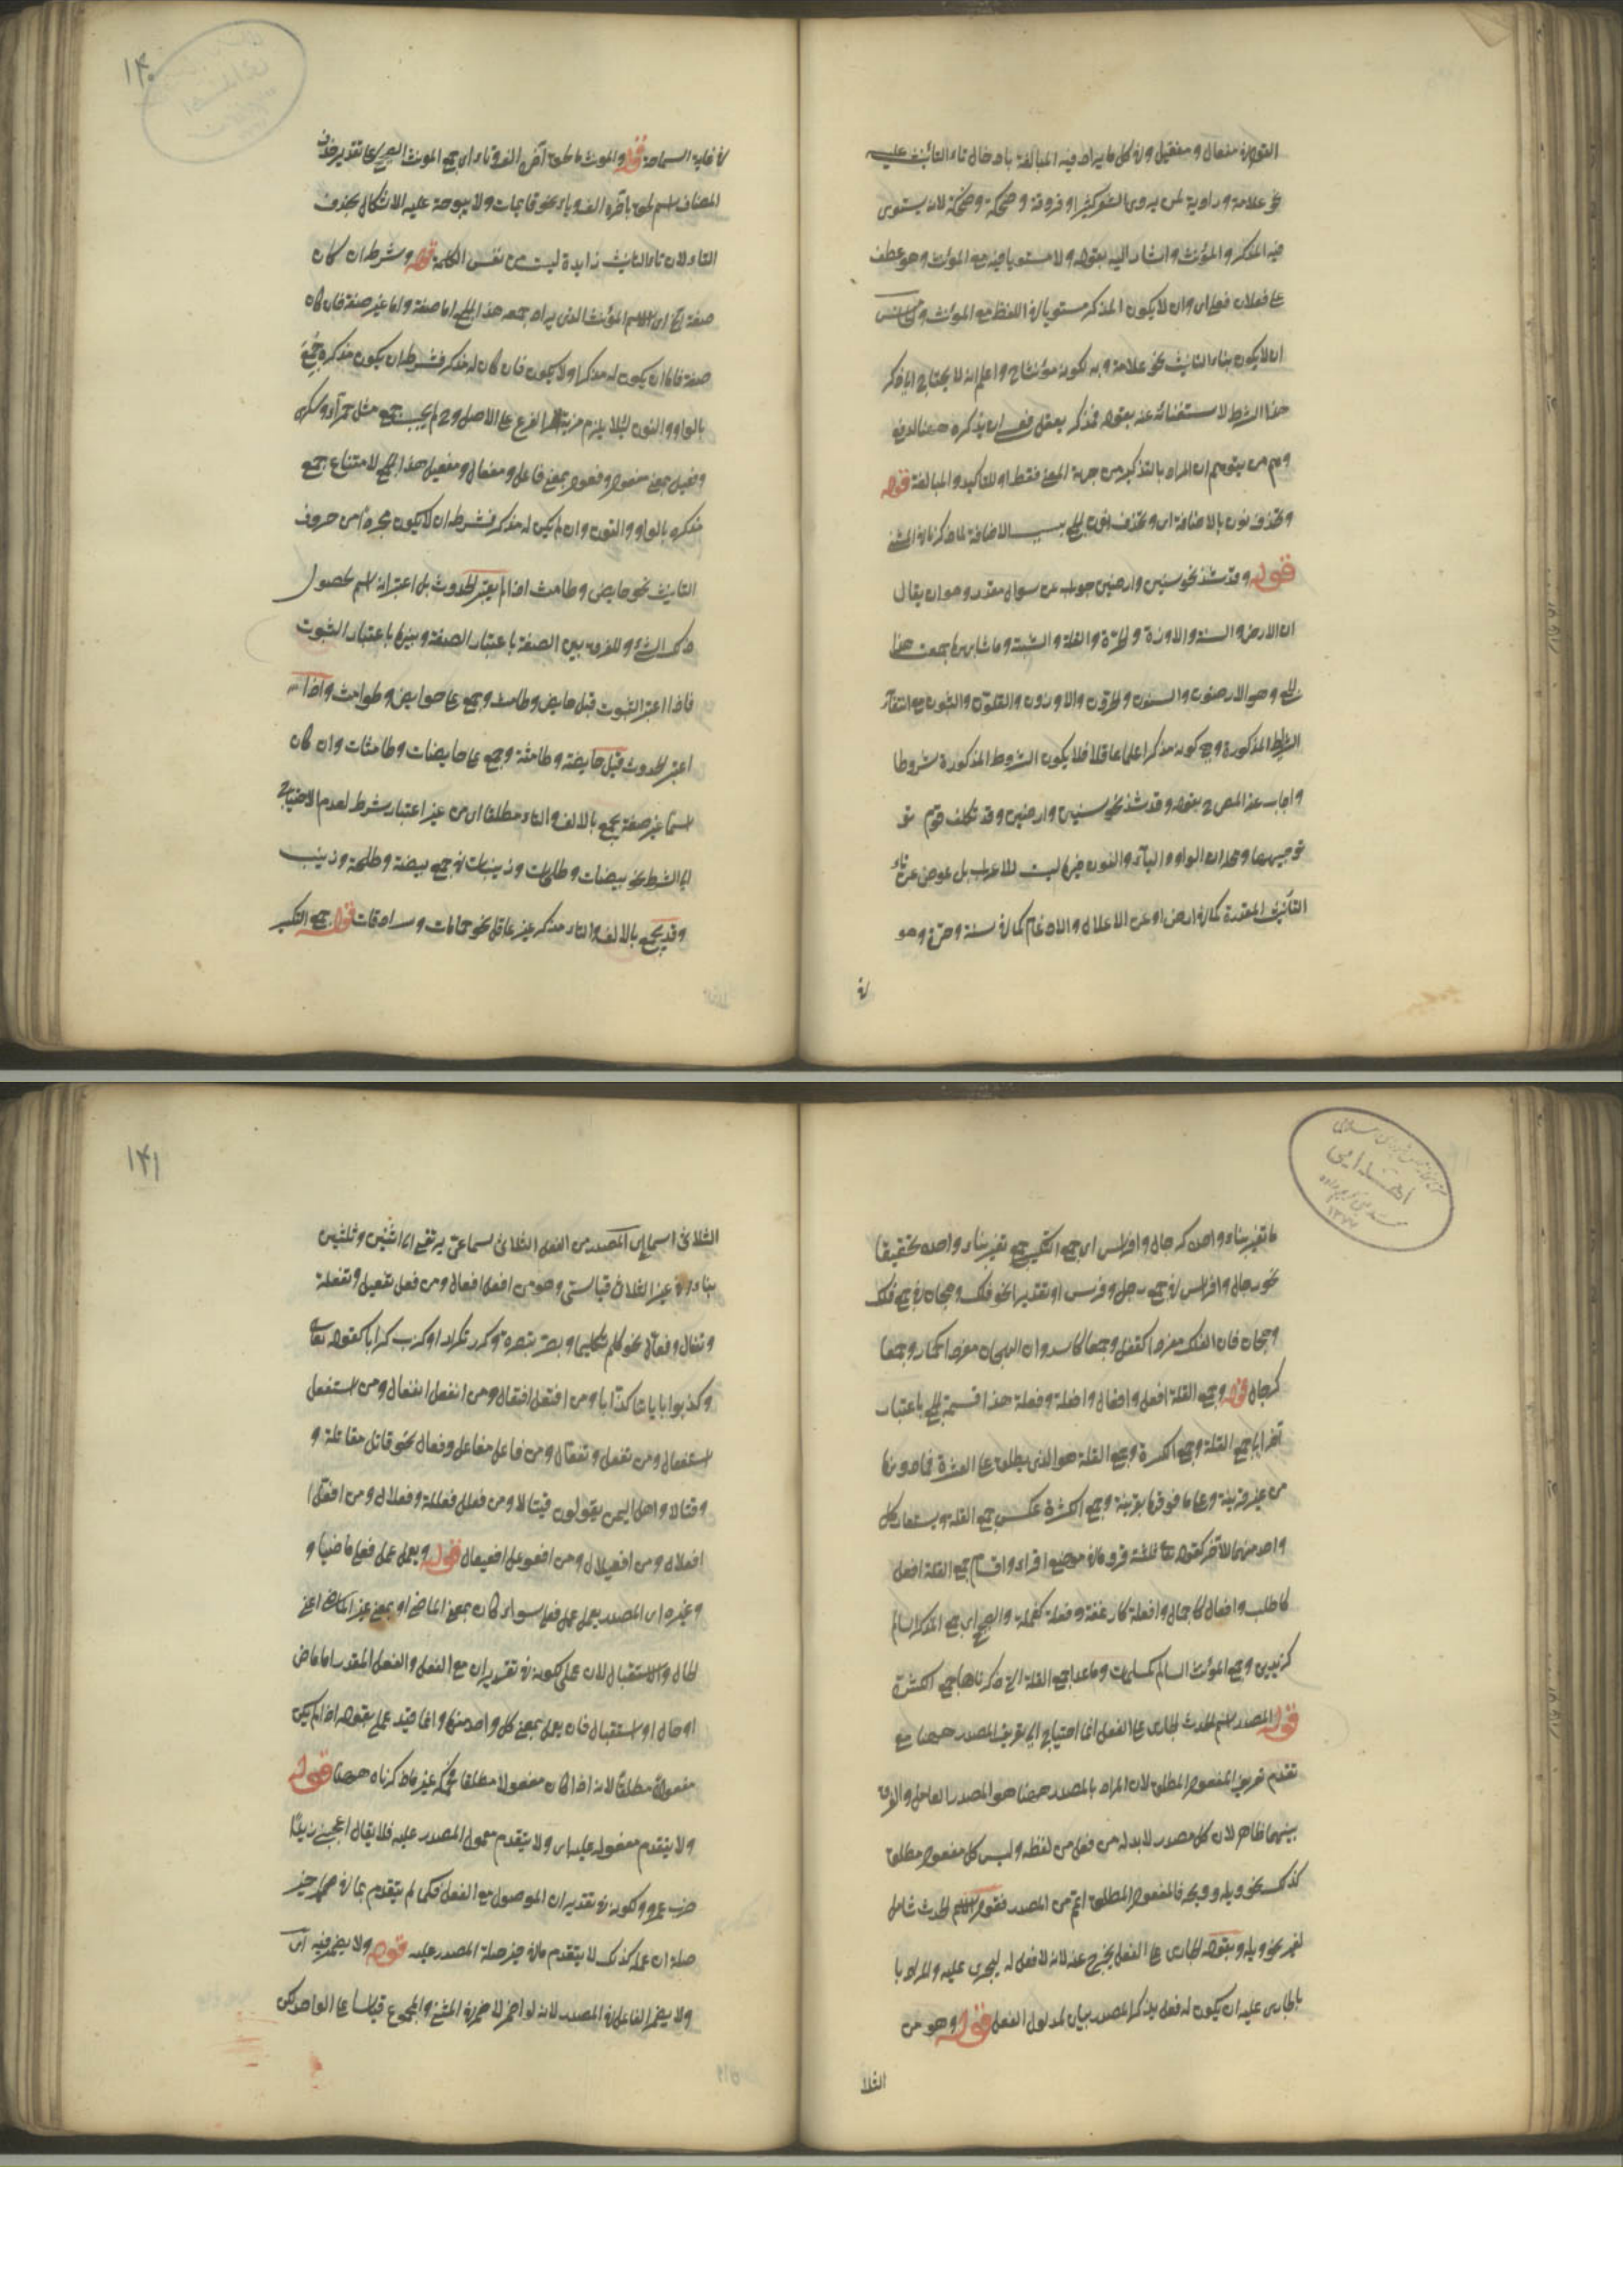 التوراة مفعال و مفعيل وفي كل ما يراد فيه المبالغة بادخال تاء التأنيث عليه
نحو علامة و راوية لمن يروى الشعر كثيرا و فروقة و ضحكة وضحكة لانه يستوى
فيه المذكر و المؤنث و اشار اليه بقوله و لا مستويا فيه مع المؤنث و هو عطف
على افعلان فعلى اى وان لا يكون المذكر مستويا في اللفظ مع المؤنث و
ان لا يكون بتاء التانيث نحو علامة و به لكونه مؤنثا ح و اعلم انه لا يحتاج الى ذكر
هذا الشرط لاستغنائه عنه بقوله فمذكر يعقل فعلى ان يذكره ههنا لدفع
وهم من يتوهم ان المراد بالتذكير من جهة المعنى فقط او للتأكيد و المبالغة قوله
و تحذف نونه بالاضافة اى و تحذف نون الجمع بسبب الاضافة لما ذكرنا في المثنى
قوله و قد شذ نحو سنين و ارضين جواب عن سوال مقدر و هو ان يقال
ان الارض و السنة و الاوزة و الحرة و القلة و الثبة و ما شابهها جمعت هذا
الجمع و هو الارضون و السنون و الحرون و الاوزون و القلون و الثبون مع انتفاء
الشرايط المذكورة و هي كونه مذكرا علما عاقلا فلا يكون الشروط المذكورة شروطا
و اجاب عنه المص ح بقوله و قد شذ نحو سنين و ارضين و قد تكلف قوم في
توجيههما و هو ان الواو و الياء و النون فيها ليست للاعراب بل عوض عن تاء
التأنيث المقدرة كما في ارض او عن الاعلال و الادغام كما في سنة و حرة و هو
في
١٤٠
في غاية السماحة قوله و المؤنث ما لحق آخره الف و تاء اى جمع المونث الصحيح على تقدير حذف
المضاف اسم لحق باخره الف و تاء نحو قايمات و لا يتوجه عليه الاشكال بحذف
التاء لان تاء التانيث زايدة ليست من نفس الكلمة قوله و شرطه ان كان
صفة الخ اى الاسم المؤنث الذى يراد جمعه هذا الجمع اما صفة و اما غير صفة فان كان
صفة فاما ان يكون له مذكر او لا يكون فان كان له مذكر فشرطه ان يكون مذكره جمع
بالواو و النون لئلا يلزم مزية الفرع على الاصل و ح لم يجب جمع مثل حمراء و سكرى
و فعيل بمعنى مفعول و فعول بمعنى فاعل و مفعال و مفعيل هذا الجمع لامتناع جمع
مذكره بالواو و النون و ان لم يكن له مذكر فشرطه ان لا يكون مجردا من حروف
التانيث نحو حايض و طامث اذا لم يعتبر الحدوث بل اعتبر انه اسم لحصول
ذلك الشئ و للفرق بين الصفة باعتبار الصفة و بينها باعتبار الثبوت
فاذا اعتبر الثبوت قيل حايض و طامث و جمع على حوايض و طوامث و اذا
اعتبر الحدوث قيل حايضة و طامثة و جمع على حايضات و طامثات و ان كان
اسما غير صفة يجمع بالالف و التاء مطلقا اى من غير اعتبار شرط لعدم الاحتياج
الى الشرط نحو بيضات و طلحات و زينبات في جمع بيضة و طلحة و زينب
و قد يجمع بالالف و التاء مذكر غير عاقل نحو حمامات و سرادقات قوله جمع التكسير
ما تغير بناء واحده كرجال و افراس اى جمع التكسير جمع تغير بناء واحده تحقيقا
نحو رجال و افراس في جمع رجل و فرس او تقديرا نحو فلك و هجان في جمع فلك
و هجان فان الفلك مفردا كقفل و جمعا كاسد و ان الهجان مفردا كحمار و جمعا
كرجال قوله و جمع القلة افعل و افعال و افعلة و فعلة هذا قسمة الجمع باعتبار
آخر الى جمع القلة و جمع الكثرة و جمع القلة هو الذى يطلق على العشرة فما دونها
من غير قرينة و على ما فوقها بقرينة و جمع الكثرة عكس جمع القلة و يستعار كل
واحد منهما للآخر كقوله تعالى ثلثة قروء في موضع اقراء و اقسام جمع القلة افعل
كاكلب و افعال كاجمال و افعلة كارغفة و فعلة كغلمة و الصحيح اى جمع المذكر السالم
كزيدين و جمع المؤنث السالم كمسلمات و ما عدا جمع القلة التى ذكرناها جمع الكثرة
قوله المصدر اسم الحدث الجارى على الفعل انما احتياج الى تعريف المصدر ههنا مع
تقدم تعريف المفعول المطلق لان المراد بالمصدر ههنا هو المصدر العامل و الفرق
بينهما ظاهر لان كل مصدر لابد له من فعل من لفظه و ليس كل مفعول مطلق
كذلك نحو ويله و ويحه فالمفعول المطلق اعم من المصدر فقوله اسم الحدث شامل
لغير نحو ويله و بقوله الجارى على الفعل يخرج عنه لانه لا فعل له ليجرى عليه و المراد با
بالجارى عليه ان يكون له فعل يذكر المصدر بيان لمدلول الفعل قوله و هو من
الثلا
١٤١
الثلاثى سماعى اى المصدر من الفعل الثلاثى سماعى يرتقى الى اثنين و ثلثين
بناء و في غير الثلاثى قياسى و هو من افعل افعال و من فعل تفعيل و تفعلة
و تفعال و فعال نحو كلم تكليما و بصر تبصرة و كرر تكرارا و كذب كذابا كقوله تعالى
و كذبوا باياتنا كذابا و من افتعل افتعال و من انفعل انفعال و من استفعل
استفعال و من تفعل و تفعال و من فاعل مفاعل و فعال نحو قاتل مقاتلة و
و قتالا و اهل اليمن يقولون قيتالا و من فعلل فعللة و فعلال و من افعل ا
افعلال و من افعيلال و من افعوعل افعيعال قوله و يعمل عمل فعله ماضيا و
و غيره اى المصدر يعمل عمل فعله سواء كان بمعنى الماضى او بمعنى غير الماضى اعنى
الحال و الاستقبال لان عمله لكونه في تقدير ان مع الفعل و الفعل المقدر اما ماض
او حال او استقبال فان يعمل بمعنى كل واحد منها و انما قيد عمله بقوله اذا لم يكن
مفعولا مطلقا لانه اذا كان مفعولا مطلقا حكمه غير ما ذكرناه ههنا قوله
ولا يتقدم معموله عليه اى و لا يتقدم معمول المصدر عليه فلا يقال اعجبنى زيدا
ضرب عمرو و لكونه في تقدير ان الموصول مع الفعل فكما لم يتقدم ما في حيز
صلة ان عليه كذلك لا يتقدم ما في حيز صلة المصدر عليه قوله ولا يضمر فيه اى
و لا يضمر الفاعل في المصدر لانه لو اضمر لاضمر في المثنى و المجموع قياسا على الواحد لكن